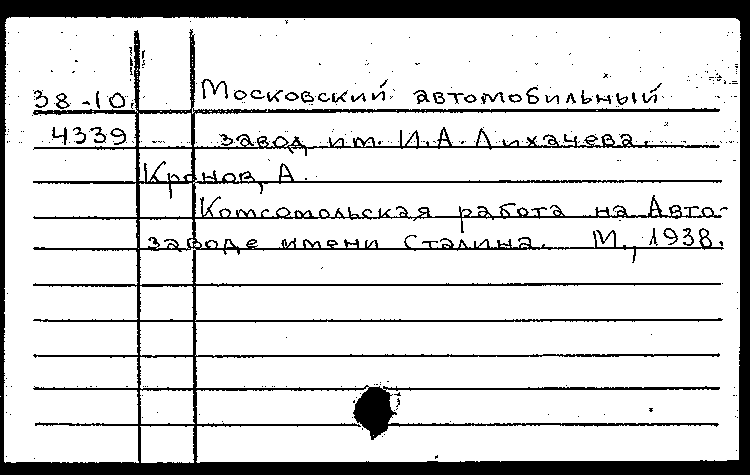 38-10 Московский автомобильный
4339 завод им. И.А. Лихачева.
Кронов, А.
Комсомольская работа на Авто-
заводе имени Сталина. М., 1938.